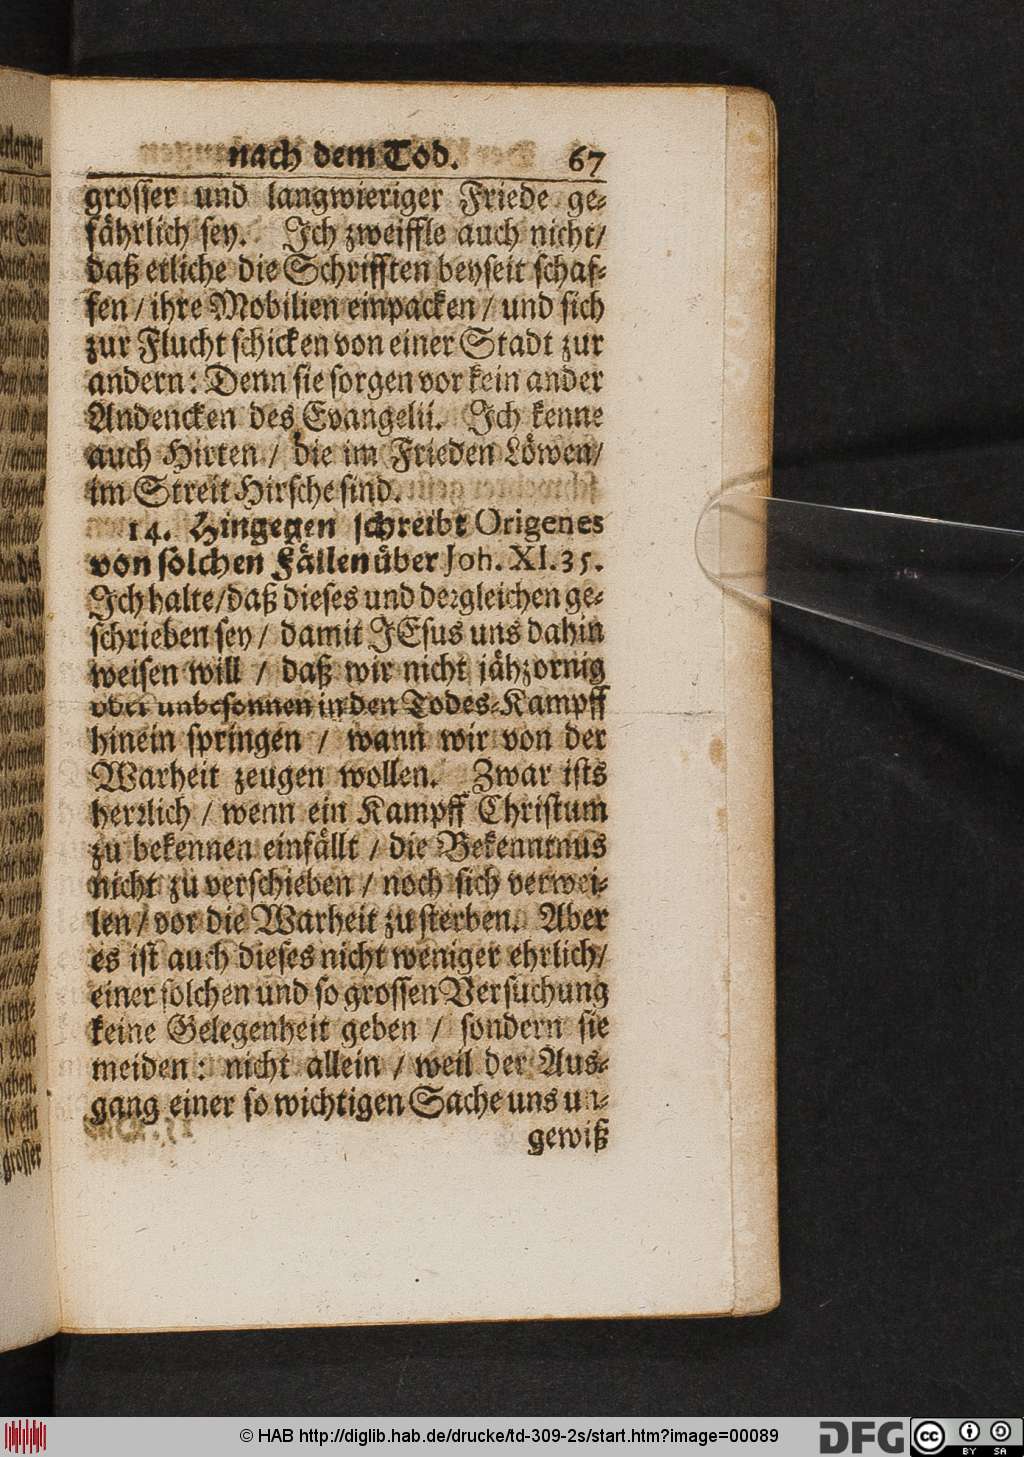 nach dem Tod. 67
grosser und langwieriger Friede ge-
fährlich sey. Ich zweiffle auch nicht/
daß etliche die Schrifften beyseit schaf-
fen / ihre Mobilien einpacken / und sich
zur Flucht schicken von einer Stadt zur
andern: Denn sie sorgen vor kein ander
Andencken des Evangelii. Ich kenne
auch Hirten / die im Frieden Löwen/
im Streit Hirsche sind.
14. Hingegen schreibt Origenes
von solchen Fällen über Joh. XI. 35.
Ich halte/daß dieses und dergleichen ge-
schrieben sey / damit JEsus uns dahin
weisen will / daß wir nicht jähzornig
oder unbesonnen in den Todes-Kampff
hinein springen / wann wir von der
Warheit zeugen wollen. Zwar ists
herrlich / wenn ein Kampff Christum
zu bekennen einfällt / die Bekenntnus
nicht zu verschieben / noch sich verwei-
len / vor die Warheit zu sterben. Aber
es ist auch dieses nicht weniger ehrlich/
einer solchen und so grossen Versuchung
keine Gelegenheit geben / sondern sie
meiden: nicht allein / weil der Aus-
gang einer so wichtigen Sache uns un-
gewiß
grosser
© HAB http://diglib.hab.de/drucke/td-309-2s/start.htm?image=00089
DFG
cc BY SA